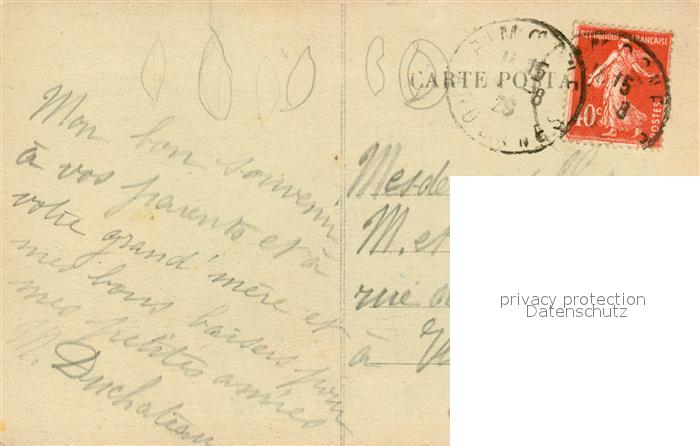 CARTE POSTA
REPUBLIQUE FRANCAISE
10c
POSTES
15
8
15-8
26
Mon bon souvenir
à vos parents et à
votre grand'mère et
mes bons baisers pour
mes petites amies
M. Duchateau
M. et
rue
à
privacy protection
Datenschutz